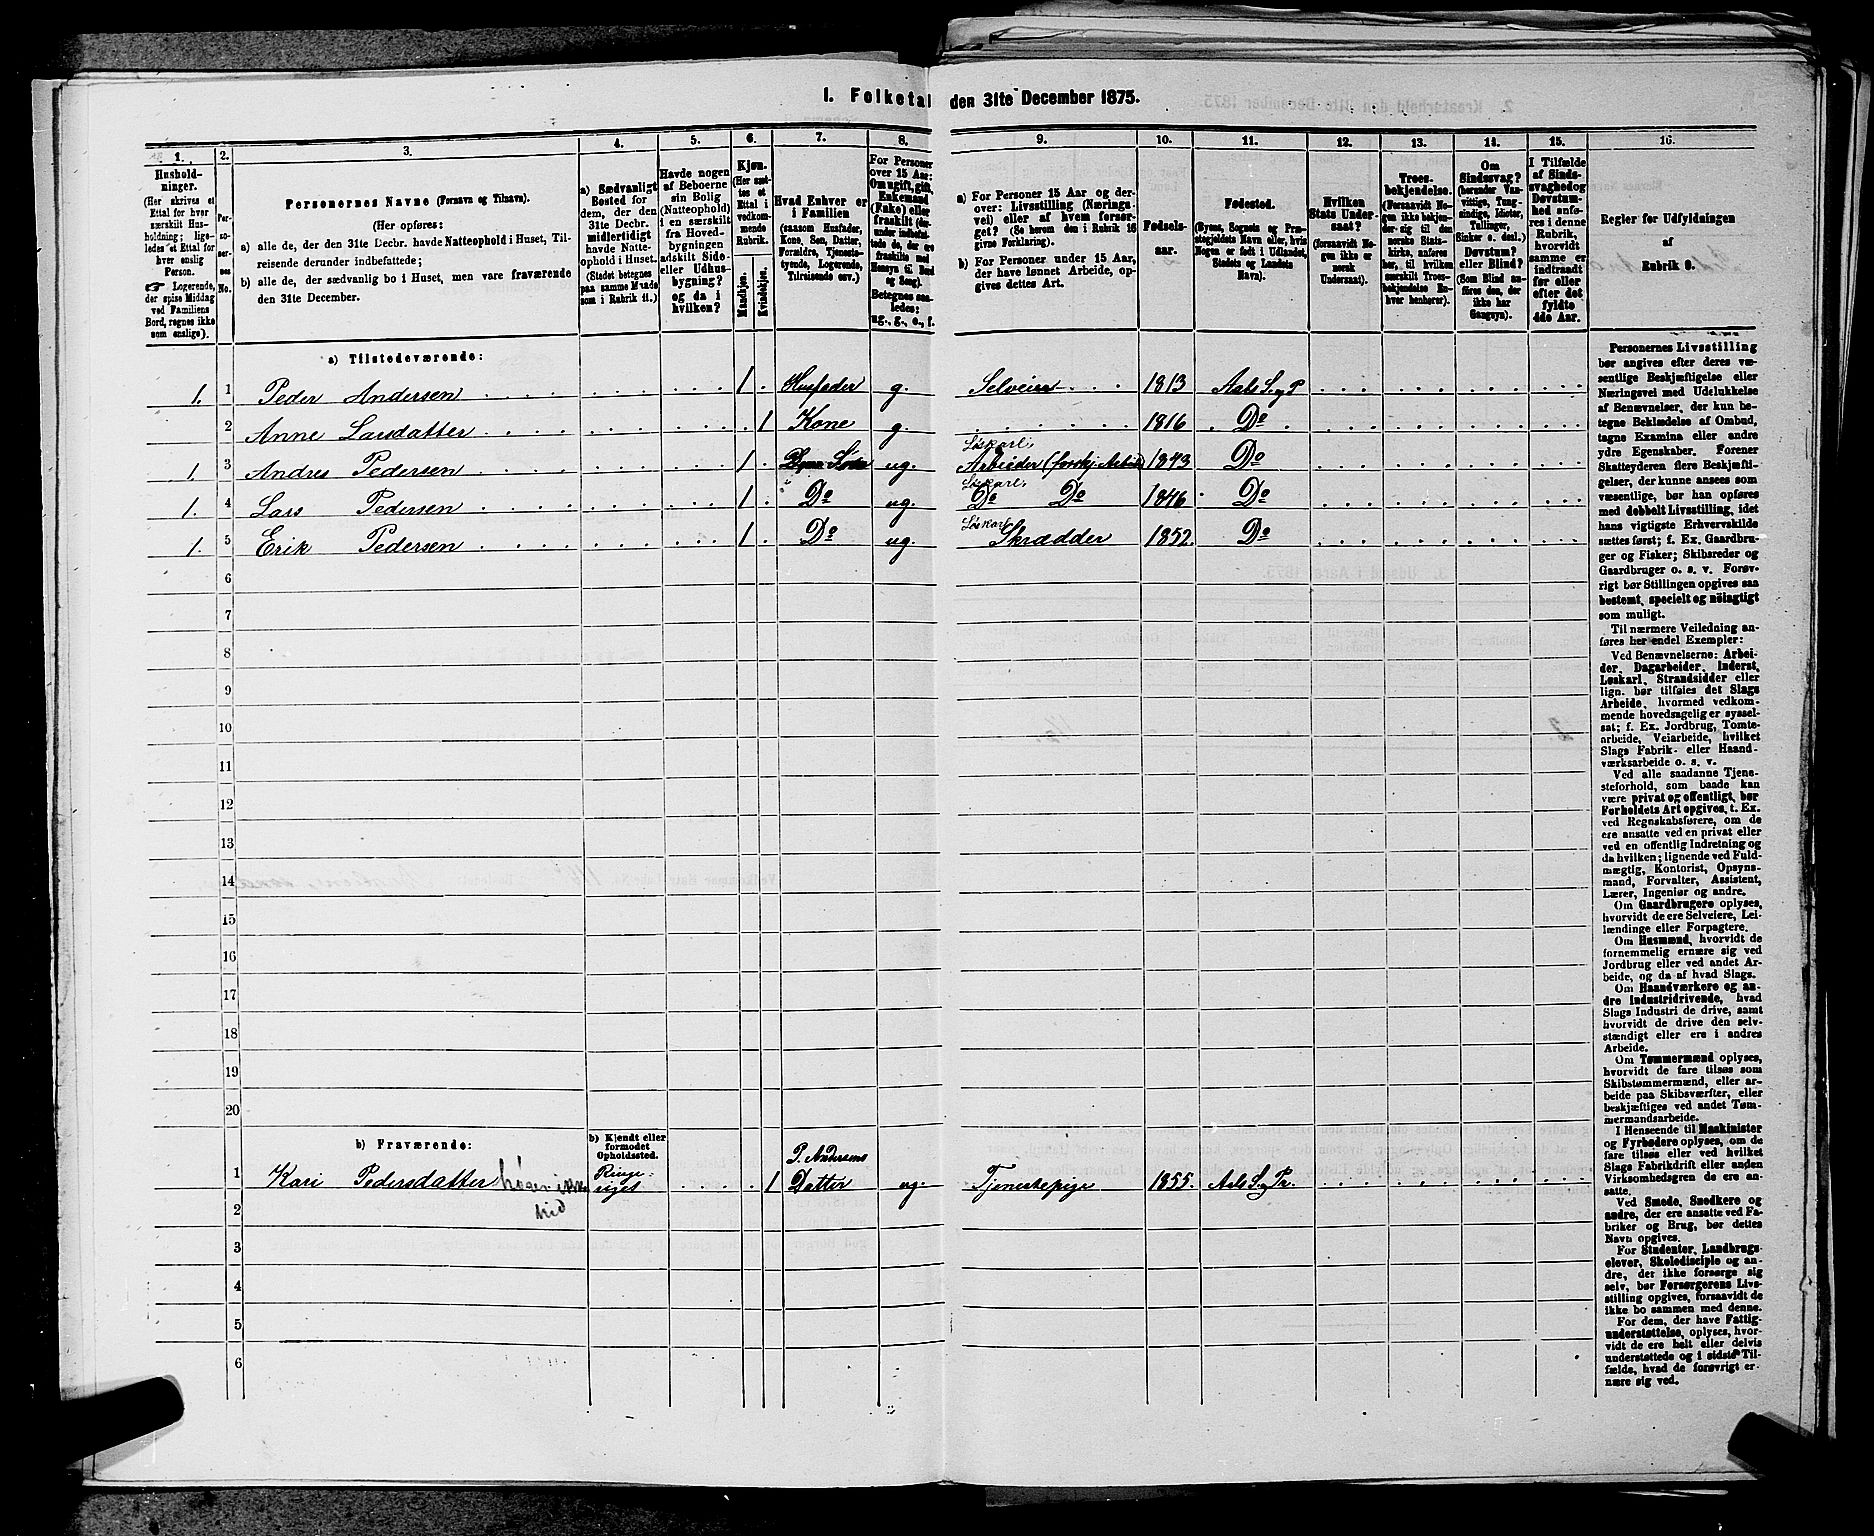 I. Folketal den 31te December 1875.
1. 2. 3. 4. 5. 6. 7. 8. 9. 10. 11. 12. 13. 14. 15. 16.
Husholdninger.
(Her skrives et
Ettal for hver
særskilt Husholdning;
ligeledes et Ettal for
hver enslig
Person.
☞ Logerende,
der spise Middag
ved Familiens
Bord, regnes ikke
som enslige).
Personernes No.
Personernes Navne (Fornavn og Tilnavn).
(Her opføres:
a) alle de, der den 31te Decbr. havde Natteophold i Huset, Tilreisende derunder indbefattede;
b) alle de, der sædvanlig bo i Huset, men vare fraværende
den 31te December.
a) Sædvanligt
Bosted for
dem, der den
31te Decbr.
midlertidigt
havde Natteophold
i Huset.
(Stedet betegnes
paa samme Maade
som i Rubrik 11.)
Havde nogen
af Beboerne
sin Bolig
(Natteophold)
i en særskilt
fra Hovedbygningen
adskilt Side-
eller Udhusbygning?
og da i
hvilken?
Kjøn.
(Her sættes et
Ettal i
vedkommende
Rubrik.
Mandkjøn.
Kvindekjøn.
Hvad Enhver er
i Familien
(saasom Husfader,
Kone, Søn, Datter,
Forældre, Tjenestetyende,
Logerende,
Tilreisende osv.)
For Personer
over 15 Aar:
Om ugift, gift,
Enkemand
(Enke) eller
fraskilt
Betegnes saaledes:
ug., g., e., f.
a) For Personer 15 Aar og derover: Livsstilling (Næringsvei)
eller af hvem forsørget?
(Se herom den i Rubrik 16
givne Forklaring).
b) For Personer under 15 Aar,
der have lønnet Arbeide, opgives
dettes Art.
Fødselsaar.
Fødested.
(Byens, Sognets og Præstegjeldets
Navn eller, hvis
Nogen er født i Udlandet,
Stedets og Landets
Navn).
Hvilken
Stats Undersaat?
(forsaavidt Nogen
ikke er
norsk
Undersaat).
Troesbekjendelse.
(Forsaavidt Nogen
ikke bekjender
sig til den
norske Statskirke,
anføres
her, til hvilken
særskilt Troesbekjendelse
Enhver
henhører).
Om
Sindssvag?
(herunder Vanvittige,
Tungsindige,
Idioter,
Tullinger,
Sinker o. desl.)
Døvstum?
eller Blind?
(Som Blind anføres
den, der
ikke har
Gangsyn).
I Tilfælde
af Sindssvaghed
og
Døvstumhed
anføres
i denne
Rubrik,
hvorvidt
samme er
indtraadt
før eller
efter det
fyldte
4de Aar.
Regler for Udfyldningen
af
Rubrik 9.
a) Tilstedeværende:
1. 1 Peder Andersen 1 Husfader g. Selveier 1813 Aals S. og P
2 Anne Larsdatter 1 Kone g. 1816 Do
Løskarl.
1. 3 Andres Pedersen 1 Søn ug. Arbeider (forskj. Arbeide) 1843 Do
Løskarl.
1. 4 Lars Pedersen 1 Do ug. Do Do 1846 Do
Løskarl
1. 5 Erik Pedersen 1 Do ug. Skrædder 1852. Do
6
7
8
9
10
11
12
13
14
15
16
17
18
19
20
b) Fraværende:
b) Kjendt eller
formodet
Opholdssted.
P. Andersens
1 Kari Pedersdatter hører ikke Ringeriget 1 Datter ug. Tjenestepige 1855. Aals S. og Pr.
hid
2
3
4
5
6
Personernes Livsstilling
bør angives efter deres væsentlige
Beskjæftigelse eller
Næringsvei med Udelukkelse
af Benævnelser, der kun betegne
Beklædelse af Ombud,
tagne Examina eller andre
ydre Egenskaber. Forener
Skatteyderen flere Beskjæftigelser,
der kunne ansees som
væsentlige, bør han opføres
med dobbelt Livsstilling, idet
hans vigtigste Erhvervskilde
sættes først; f. Ex. Gaardbruger
og Fisker; Skibsreder og
Gaardbruger o. s. v. Forøvrigt
bør Stillingen opgives saa
bestemt, specielt og nøiagtigt
som muligt.
Til nærmere Veiledning anføres
her endel Exempler:
Ved Benævnelserne: Arbeider,
Dagarbeider, Inderst,
Løskarl, Strandsidder eller
lign. bør tilføies det Slags
Arbeide, hvormed vedkommende
hovedsagelig er sysselsat;
f. Ex. Jordbrug, Tomtearbeide,
Veiarbeide, hvilket
Slags Fabrik- eller Haandværksarbeide
o. s. v.
Ved alle saadanne Tjenesteforhold,
som baade kan
være privat og offentligt, bør
Forholdets Art opgives, t. Ex.
ved Regnskabsførere, om de
ere ansatte ved en privat eller
ved en offentlig Indretning og
da hvilken; lignende ved Fuldmægtig,
Kontorist, Opsynsmand,
Forvalter, Assistent,
Lærer, Ingeniør og andre.
Om Gaardbrugere oplyses,
hvorvidt de ere Selveiere, Leilændinge
eller Forpagtere.
Om Husmænd, hvorvidt de
fornemmelig ernære sig ved
Jordbrug eller ved andet Arbeide,
og da af hvad Slags.
Om Haandværkere og andre
Industridrivende, hvad
Slags Industri de drive, samt
hvorvidt de drive den selvstændigt
eller ere i andres
Arbeide.
Om Tømmermænd oplyses,
hvorvidt de fare tilsøs som
Skibstømmermænd, eller arbeide
paa Skibsværfter, eller
beskjæftiges ved andet Tømmermandsarbeide.
I Henseende til Maskinister
og Fyrbødere oplyses, om de
fare tilsøs eller ved hvilket
Slags Fabrikdrift eller anden
Virksomhedsgren de ere ansatte.
Ved Smede, Snedkere og
andre, der ere ansatte ved Fabriker
og Brug, bør dettes
Navn opgives.
For Studenter, Landbrugselever,
Skoledisciple og andre,
der ikke forsørge sig
selv, bør Forsørgerens Livsstilling
opgives, forsaavidt de
ikke bo sammen med denne.
For dem, der have Fattigunderstøttelse,
oplyses, hvorvidt
de ere helt eller delvis
understøttede og i sidste Tilfælde,
hvad de forøvrigt ernære
sig ved.